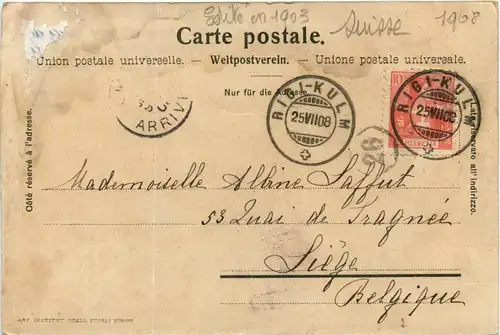 Edité en 1903 Suisse 1908
Carte postale.
Union postale universelle. – Weltpostverein. – Unione postale universale.
Nur für die Adresse.
RIGI-KULM
25 VII 08
RIGI-KULM
25 VII 08
10
HELVETIA
ARRIV
26
Côté réservé à l'adresse.
Lato riservato all'indirizzo.
Mademoiselle Albine Saffut
53 Quai de Fragnée
Liége
Belgique
ART. INSTITUT ORELL FÜSSLI ZÜRICH